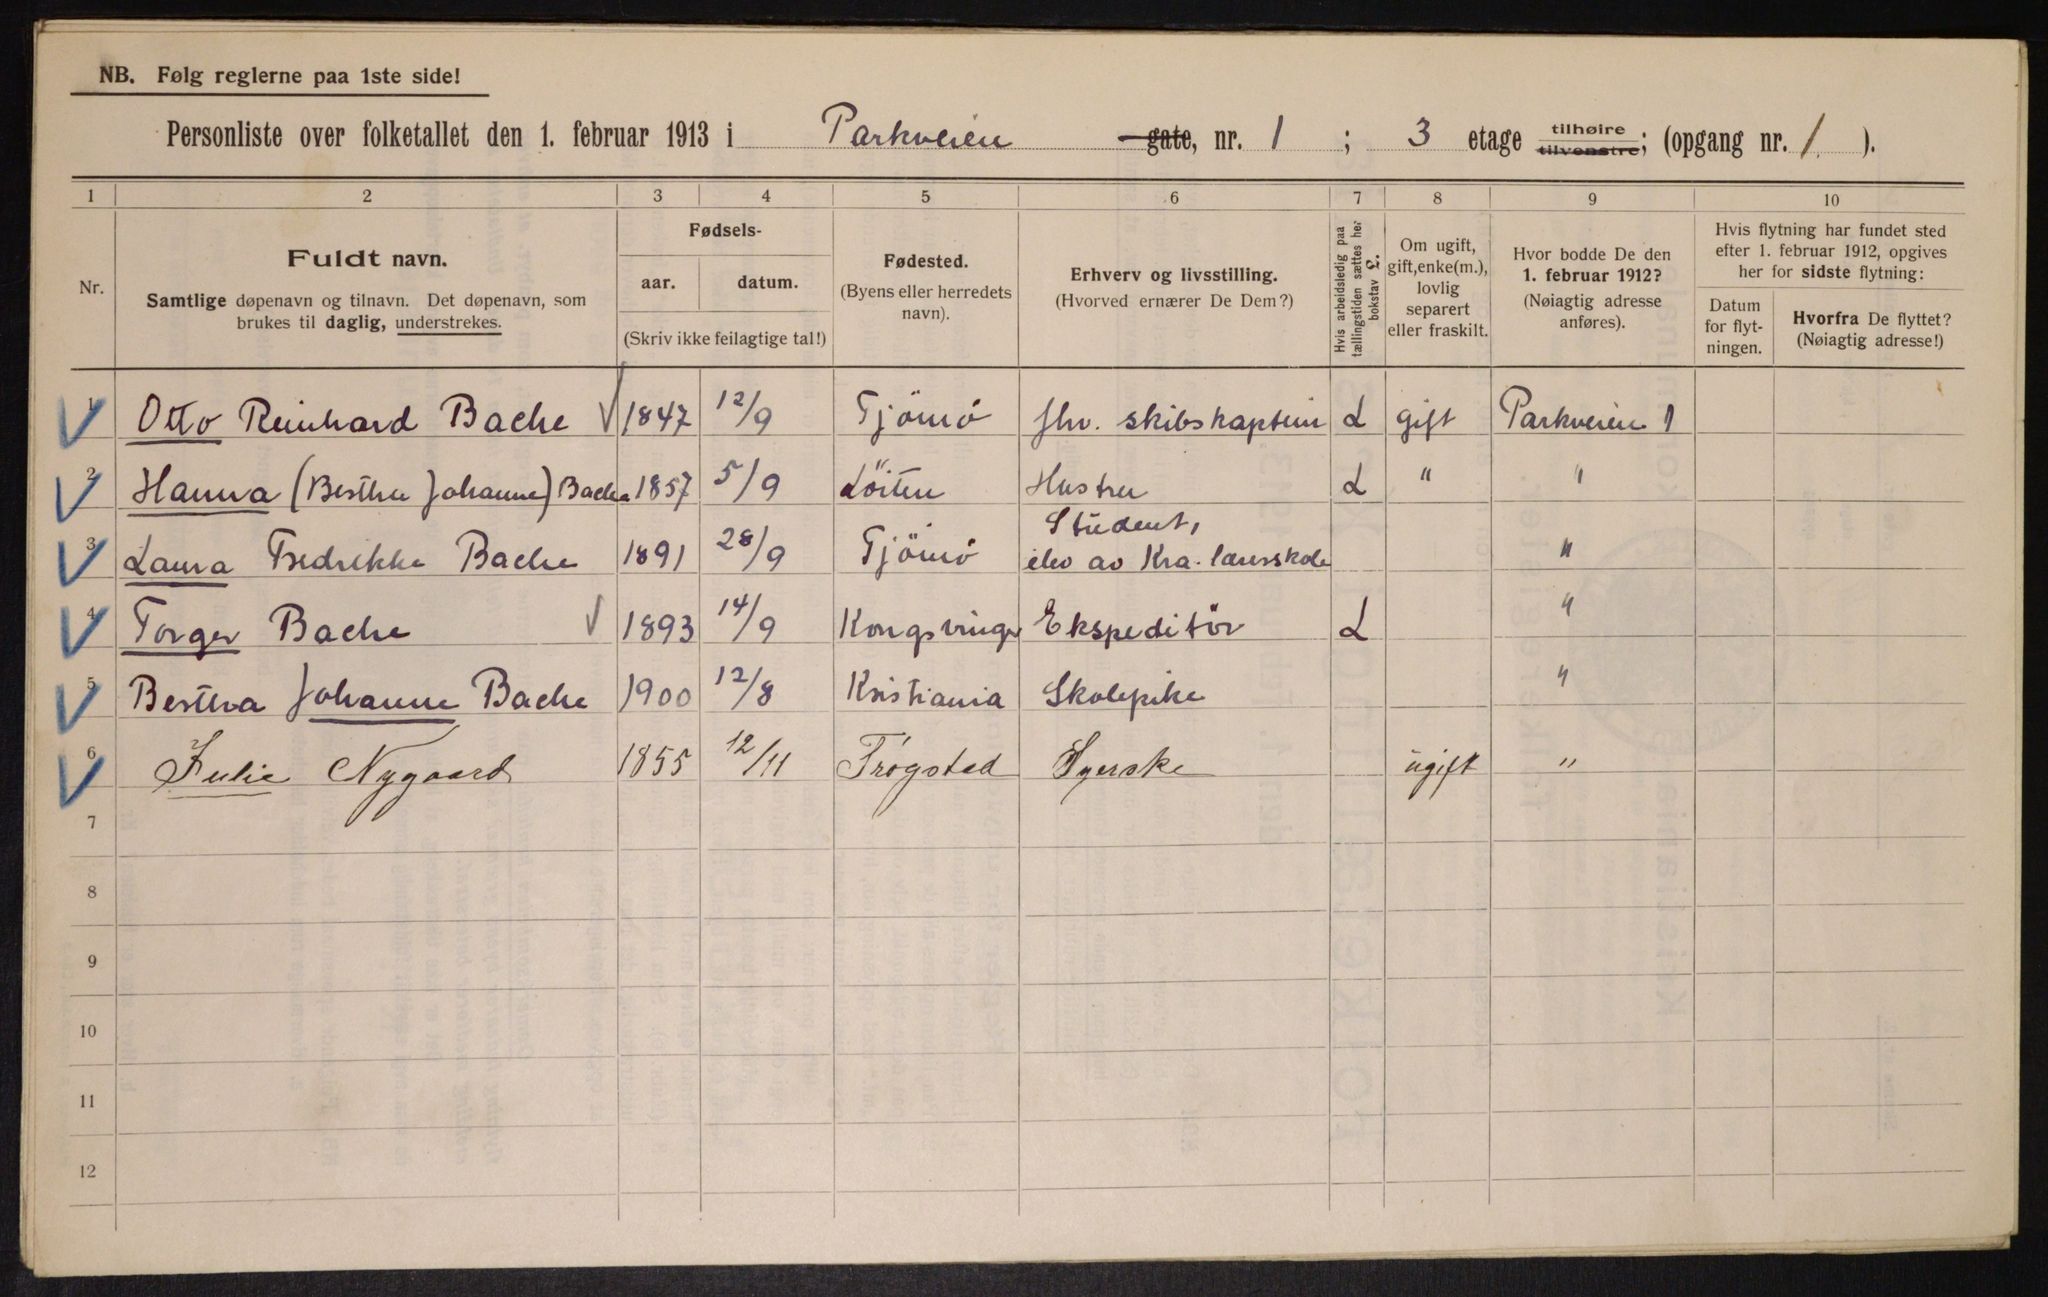 NB. Følg reglerne paa 1ste side!
Personliste over folketallet den 1. februar 1913 i Parkveien gate, nr. 1 ; 3 etage tilhøire tilvenstre; (opgang nr. 1 ).
1 2 3 4 5 6 7 8 9 10
Nr.
Fuldt navn.
Samtlige døpenavn og tilnavn. Det døpenavn, som
brukes til daglig, understrekes.
Fødsels-
aar. datum.
(Skriv ikke feilagtige tal!)
Fødested.
(Byens eller herredets
navn).
Erhverv og livsstilling.
(Hvorved ernærer De Dem?)
Hvis arbeidsledig paa
tællingstiden sættes her
bokstav L.
Om ugift,
gift, enke(m.),
lovlig
separert
eller fraskilt.
Hvor bodde De den
1. februar 1912?
(Nøiagtig adresse
anføres).
Hvis flytning har fundet sted
efter 1. februar 1912, opgives
her for sidste flytning:
Datum
for flyt-
ningen.
Hvorfra De flyttet?
(Nøiagtig adresse!)
1 Otto Reinhard Bache 1847 12/9 Tjömö fhv. skibskaptein L gift Parkveien 1
2 Hanna (Berthe Johanne) Bache 1857 5/9 Löiten Hustru L " "
3 Laura Fredrikke Bache 1891 28/9 Tjömö Student,
elev av Kra. lærerskole "
4 Torger Bache 1893 14/9 Kongsvinger Ekspeditör L "
5 Bertha Johanne Bache 1900 12/8 Kristiania Skolepike "
6 Julie Nygaard 1855 12/11 Trøgstad Syerske ugift "
7
8
9
10
11
12